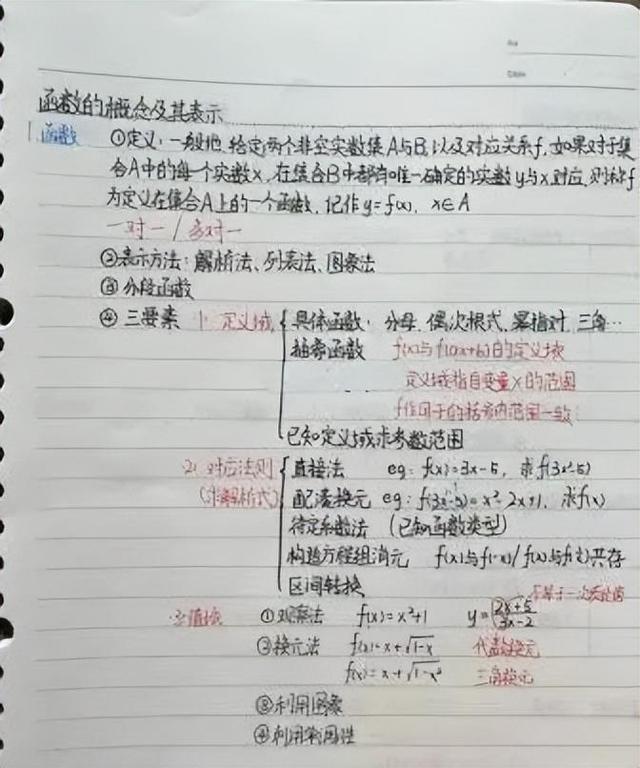 函数的概念及其表示
函数 ①定义:一般地,给定两个非空实数集A与B,以及对应关系f,如果对于集
合A中的每个实数x,在集合B中都有唯一确定的实数y与x对应,则称f
为定义在集合A上的一个函数,记作y=f(x), x∈A
一对一 / 多对一
②表示方法:解析法、列表法、图象法
③分段函数
④三要素 1. 定义域 具体函数:分母、偶次根式、幂指对、三角…
抽象函数 f(x)与f(ax+b)的定义域
定义域指自变量x的范围
f作用下的括号内范围一致
已知定义域求参数范围
2. 对应法则 直接法 eg: f(x)=3x-5, 求f(3x²-5)
(求解析式) 配凑换元 eg: f(3x-5)=x²-2x+1, 求f(x)
待定系数法 (已知函数类型)
构造方程组消元 f(x)与f(-x)/f(x)与f()共存
区间转换
不等于一次系数
3. 值域 ①观察法 f(x)=x²+1 y=(2x+5)/(3x-2)
②换元法 f(x)=x+√1-x 代数换元
f(x)=x+√1-x² 三角换元
③利用图象
④利用单调性